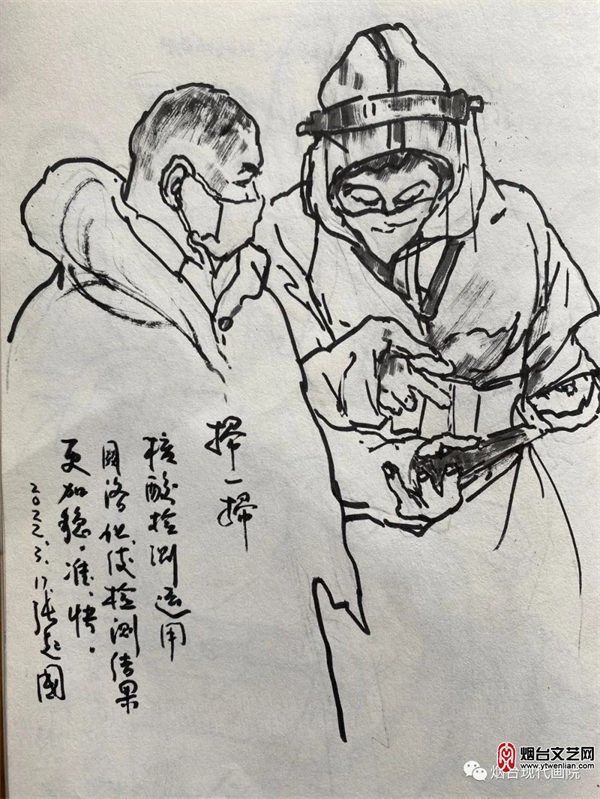 掃一掃
核酸检测运用
网络化使检测结果
更加稳、准、快。
2022.3.17 张起国
烟台文艺网
www.ytwenlian.com
烟台现代画院